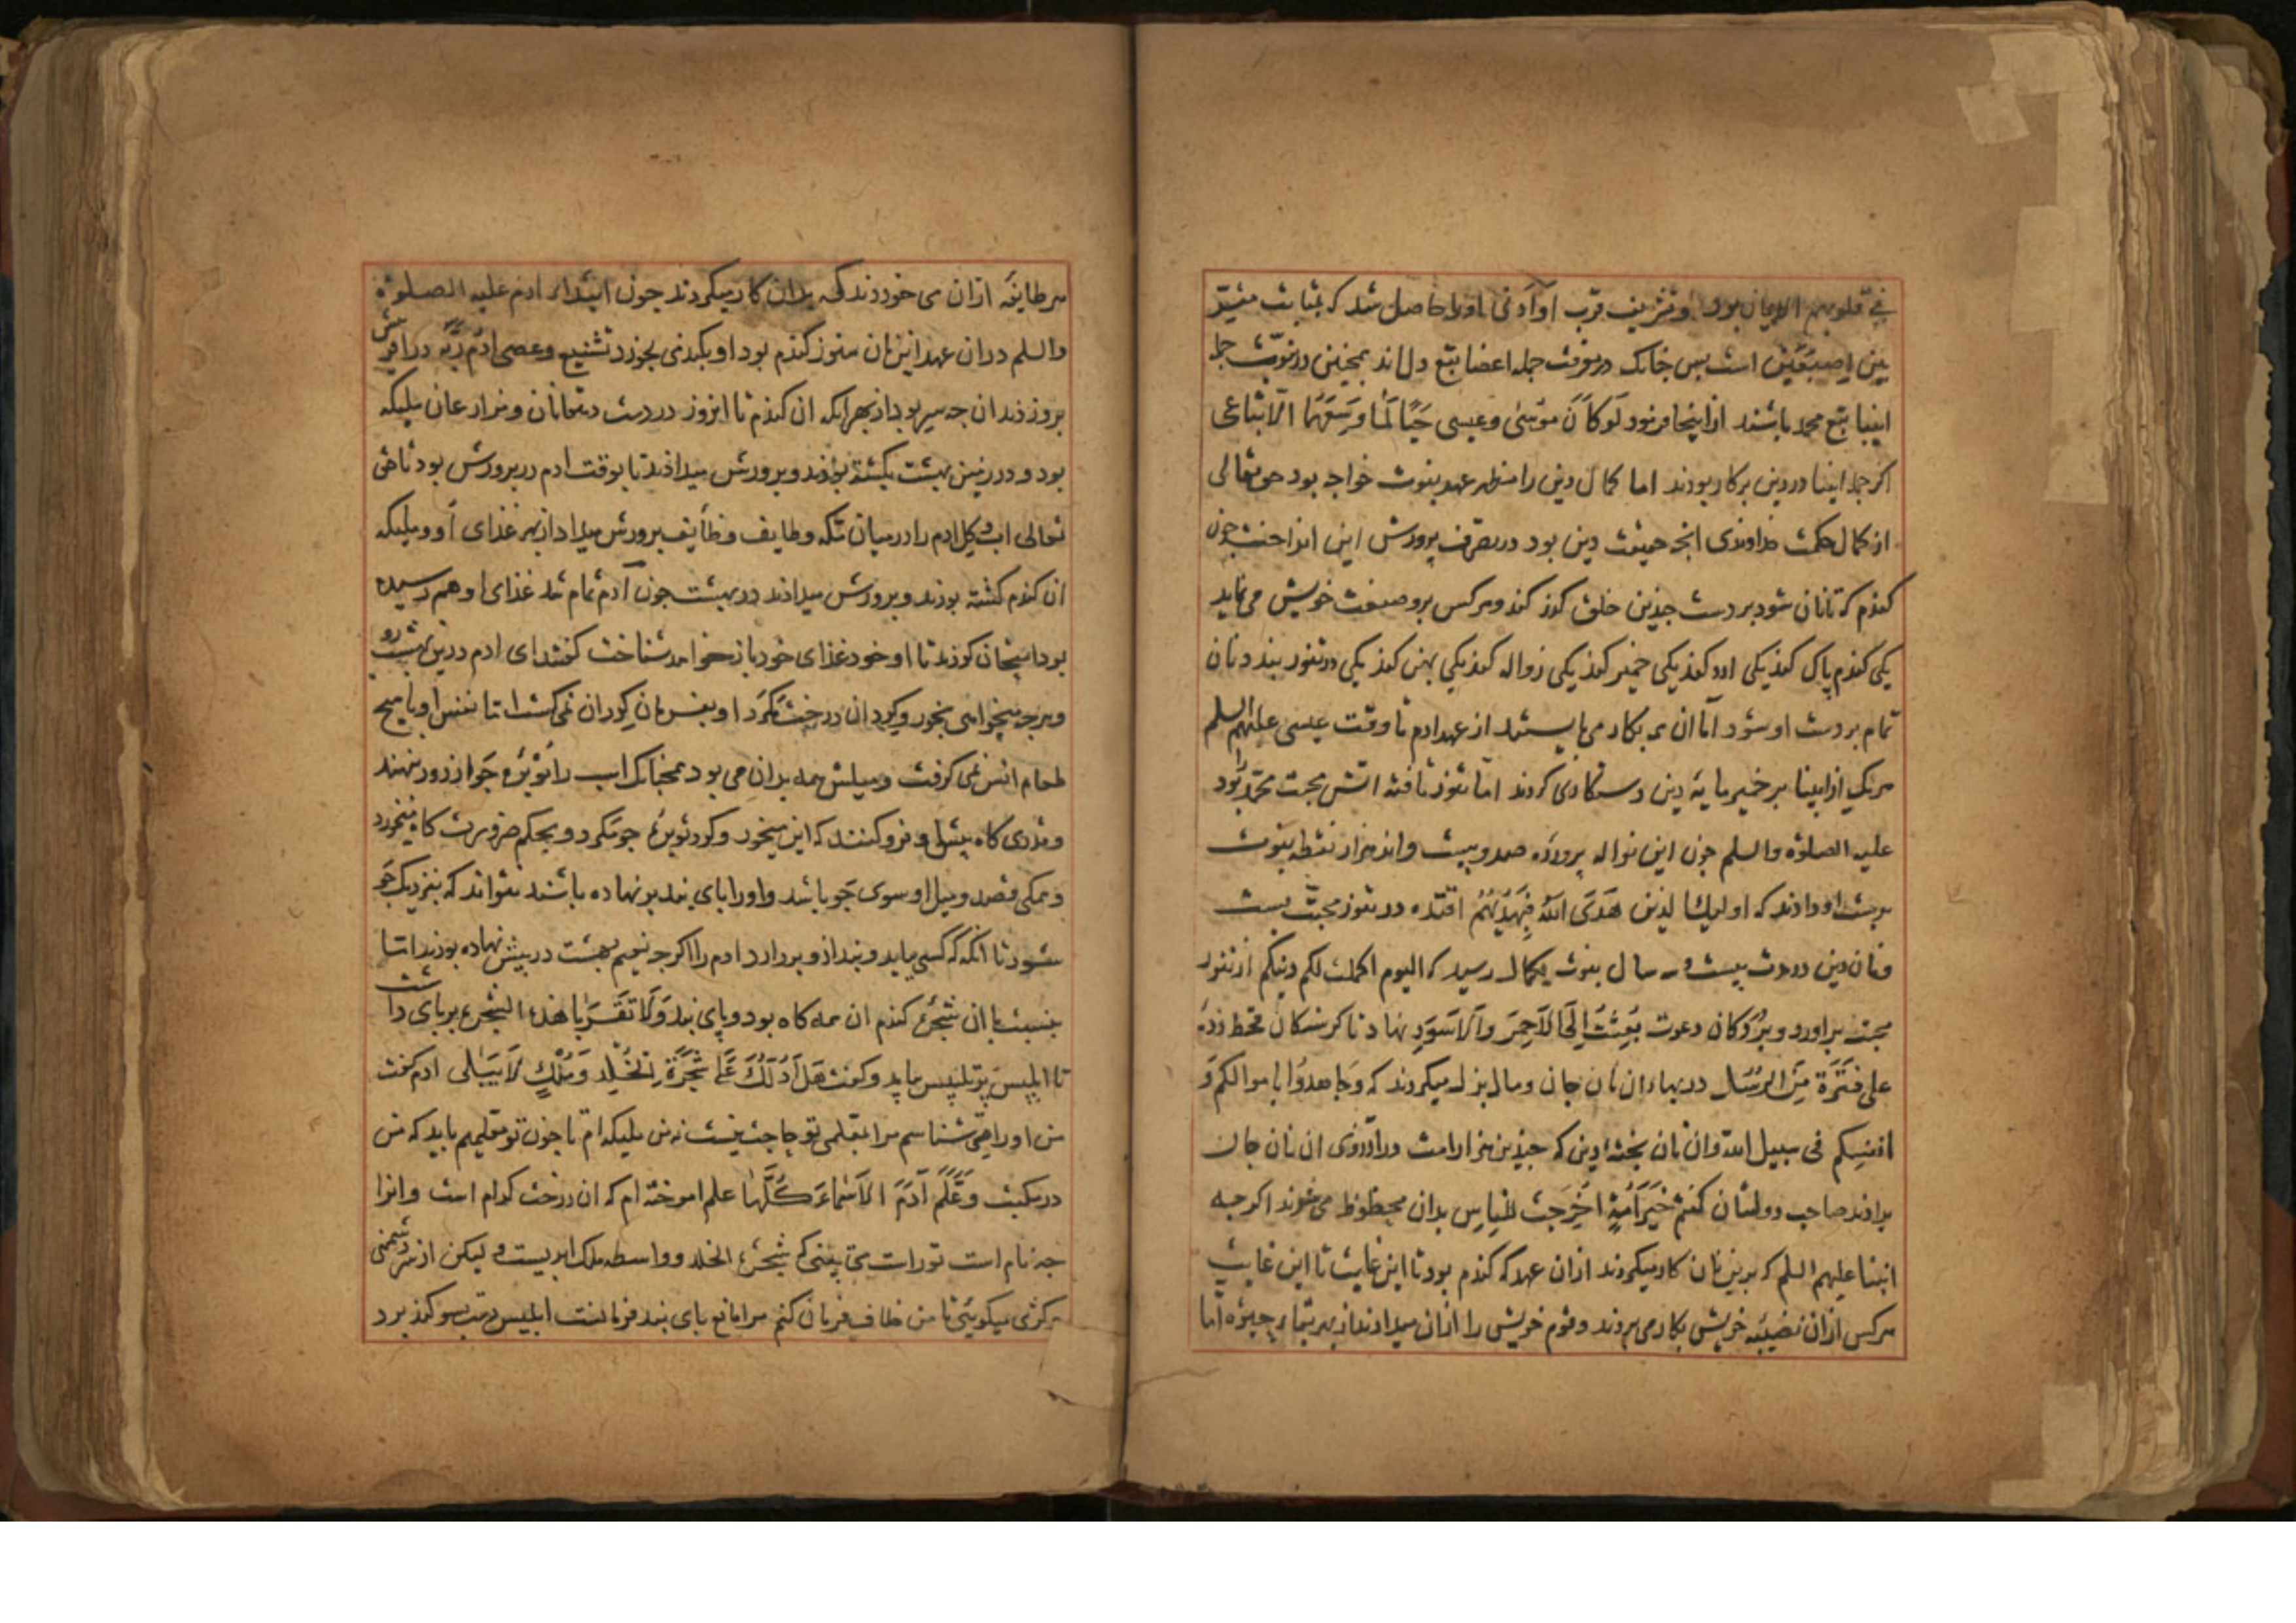 فی قلوبهم الایمان بود و تشریف قرب او ادنی او را حاصل شد که بمثابت
بین اصبعین است پس چنانک در معرفت جمله اعضا تبع دل اند همچنین در نبوت جمله
انبیا تبع محمد باشند از اینجا فرمود لَوکانَ موسَی وعیسی حَیًّا لَمَا وَسِعَهُمَا الّا اتباعی
اکر جمله انبیا در دین برکار بودند اما کمال دین را مظهر عهد نبوت خواجه بود حق تعالی
از کمال حکمت خداوندی انچه حقیقت دین بود در تصرف پرورش این انداخت چون
کندم که تا نان شود بر دست چندین خلق کذر کند و هرکس برو صنعت خویش می نماید
یکی کندم پاک کند یکی ارد کند یکی خمیر کند یکی زواله کند یکی پهن کند یکی در تنور بندد نان
تمام بر دست او شود اما ان همه بکار می بایستند از عهد ادم تا وقت عیسی علیهم السلم
هریک از انبیا بر خمیر مایه دین دستکاری کردند اما تنور تافته اتش محبت محمد را بود
علیه الصلوة والسلم چون این نواله پرورده صد و بیست واند هزار نقطه نبوت
بدست او دادند که اولیک الذین هَدَی اللّه فَبِهُدیهُم اقتده در تنور محبت بست
و نان دین در مدت بیست و سه سال نبوت بکمال رسید که الیوم اکملت لکم دینکم از تنور
محبت براورد و بر دکان دعوت بُعِثتُ اِلَی الاَحمَرِ وَالاَسوَدِ نهاد تا کرسنکان قحط زده
علی فَترَةٍ مِنَ الرُّسُل در بهاء ان نان جان و مال بذل میکردند که وَجاهدوا باموالکم وَ
انفسکم فی سبیل اللّه وان نان پختهٔ دین که چندین هزار امت در ارزوی ان نان جان
بدادند صاحب دولتان کنتم خَیرَ اُمَّةٍ اُخرِجَت للنّاس بدان محظوظ می شوند اکرچه
انبیا علیهم السلم که برین نان کار میکردند ازان عهد که کندم بود تا این غایت تا این غایت
هرکس ازان نصیبه خویش بکار می بردند و قوم خویش را ازان میدادند از بهر اما
هر طایفه ازان می خوردند که بدان کار میکردند چون ابتداء ادم علیه الصلوة
والسلم دران عهد این نان هنوز کندم بود او بکندمی بخورد تشنیع وعصی ادم ربَّه در افرینش
بروز زد ان چه سر بود از بهر انکه ان کندم تا امروز در دست دهقانان و مزارعان ملیکه
بود و در زمین بهشت بکشته بودند و پرورش میدادند تا بوقت ادم در پرورش بود تا حق
تعالی اب و کل ادم را در میان مکه و طایف وظایف پرورش میداد از بهر غذای او و ملیکه
ان کندم کشته بودند و پرورش میدادند در بهشت چون ادم تمام شد غذای او هم رسیده
بود امتحان کردند تا او خود غذای خود باز خواهد شناخت کفتند ای ادم درین بهشت رو
و هرچه میخواهی بخور و کرد ان درخت مکرد او بفرمان کرد ان نمی کشت اما نفس او با هیچ
طعام انس نمی کرفت و میلش همه بدان می بود همچنانک اسب را توبره جو از دور بنهند
و قدری کاه پیش او فرو کنند که این میخور و کرد توبرهٔ جو مکرد و بحکم ضرورت کاه میخورد
و همکی قصد و میل او سوی جو باشد و اورا پای بند بر نهاده باشند نتواند که بنزدیک جو
شود تا انکه که کسی بیاید و بند ازو بردارد ادم را اکرچه نعیم بهشت در پیش نهاده بودند اما
بنسبت با ان شجرهٔ کندم ان همه کاه بود و پای بند وَلا تَقرَبا هذه الشجرة بر پای داشت
تا ابلیس پرتلبیس بیاید و کفت هَل اَدُلُّکَ عَلی شَجَرَةِ الخُلدِ وَمُلکٍ لا یَبلی ادم کفت
من اورا می شناسم مرا بمعلمی تو حاجت نیست نه من ملیکه ام تا چون تو معلمیم باید که من
در مکتب وَعَلَّمَ آدَمَ الاَسماءَ کُلَّها علم اموخته ام که ان درخت کدام است و انرا
چه نام است تو راست می کویی که شجرة الخلد و واسطه ملک ابدیست ولیکن از سر دشمنی
و کژی میکوئی تا من خلاف فرمان کنم مرا مانع پای بند فرمانست ابلیس سوکند برد